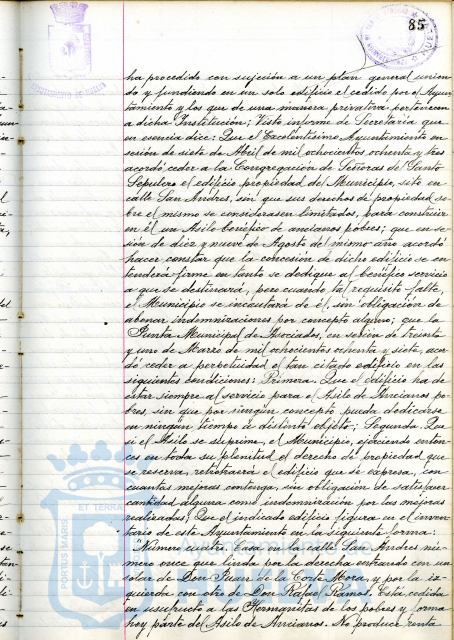 85
ha procedido con sujeción a un plan general unien
do y fundiendo en un solo edificio el cedido por el Ayun
tamiento y los que de una manera privativa pertenecen
a dicha Institución; Visto informe de Secretaria que
en esencia dice: Que el Excelentísimo Ayuntamiento en
sesión de siete de Abril de mil ochocientos ochenta y tres
acordó ceder a la Congregación de Señoras del Santo
Sepulcro el edificio propiedad del Municipio, sito en
calle San Andres, sin que sus derechos de propiedad so
bre el mismo se considerasen limitados, para construir
en él un Asilo benéfico de ancianos pobres; que en se
sión de diez y nueve de Agosto del mismo año acordó
hacer constar que la concesión de dicho edificio se en
tenderá firme en tanto se dedique al benéfico servicio
a que se destinará, pero cuando tal requisito falte,
el Municipio se incautará de él, sin obligación de
abonar indemnizaciones por concepto alguno; que la
Junta Municipal de Asociados, en sesión de treinta
y uno de Marzo de mil ochocientos ochenta y siete, acor
dó ceder a perpetuidad el tan citado edificio en las
siguientes condiciones: Primera. Que el edificio ha de
estar siempre al servicio para el Asilo de Ancianos po
bres, sin que por ningún concepto pueda dedicarse
en ningún tiempo a distinto objeto; Segunda. Que
si el Asilo se suprime, el Municipio, ejerciendo enton
ces en toda su plenitud el derecho de propiedad que
se reserva, retrotraerá el edificio que se expresa, con
cuantas mejoras contenga, sin obligación de satisfacer
cantidad alguna como indemnización por las mejoras
realizadas; Que el indicado edificio figura en el inven
tario de este Ayuntamiento en la siguiente forma:
"Número cuatro. Casa en la calle San Andres nú
mero once que linda por la derecha entrando con un
solar de Don Juan de la Corte Mora, y por la iz
quierda con otro de Don Rafael Ramos. Está cedida
en usufructo a las Hermanitas de los pobres y forma
hoy parte del Asilo de Ancianos. No produce renta
PORTUS MARIS ET TERRAE